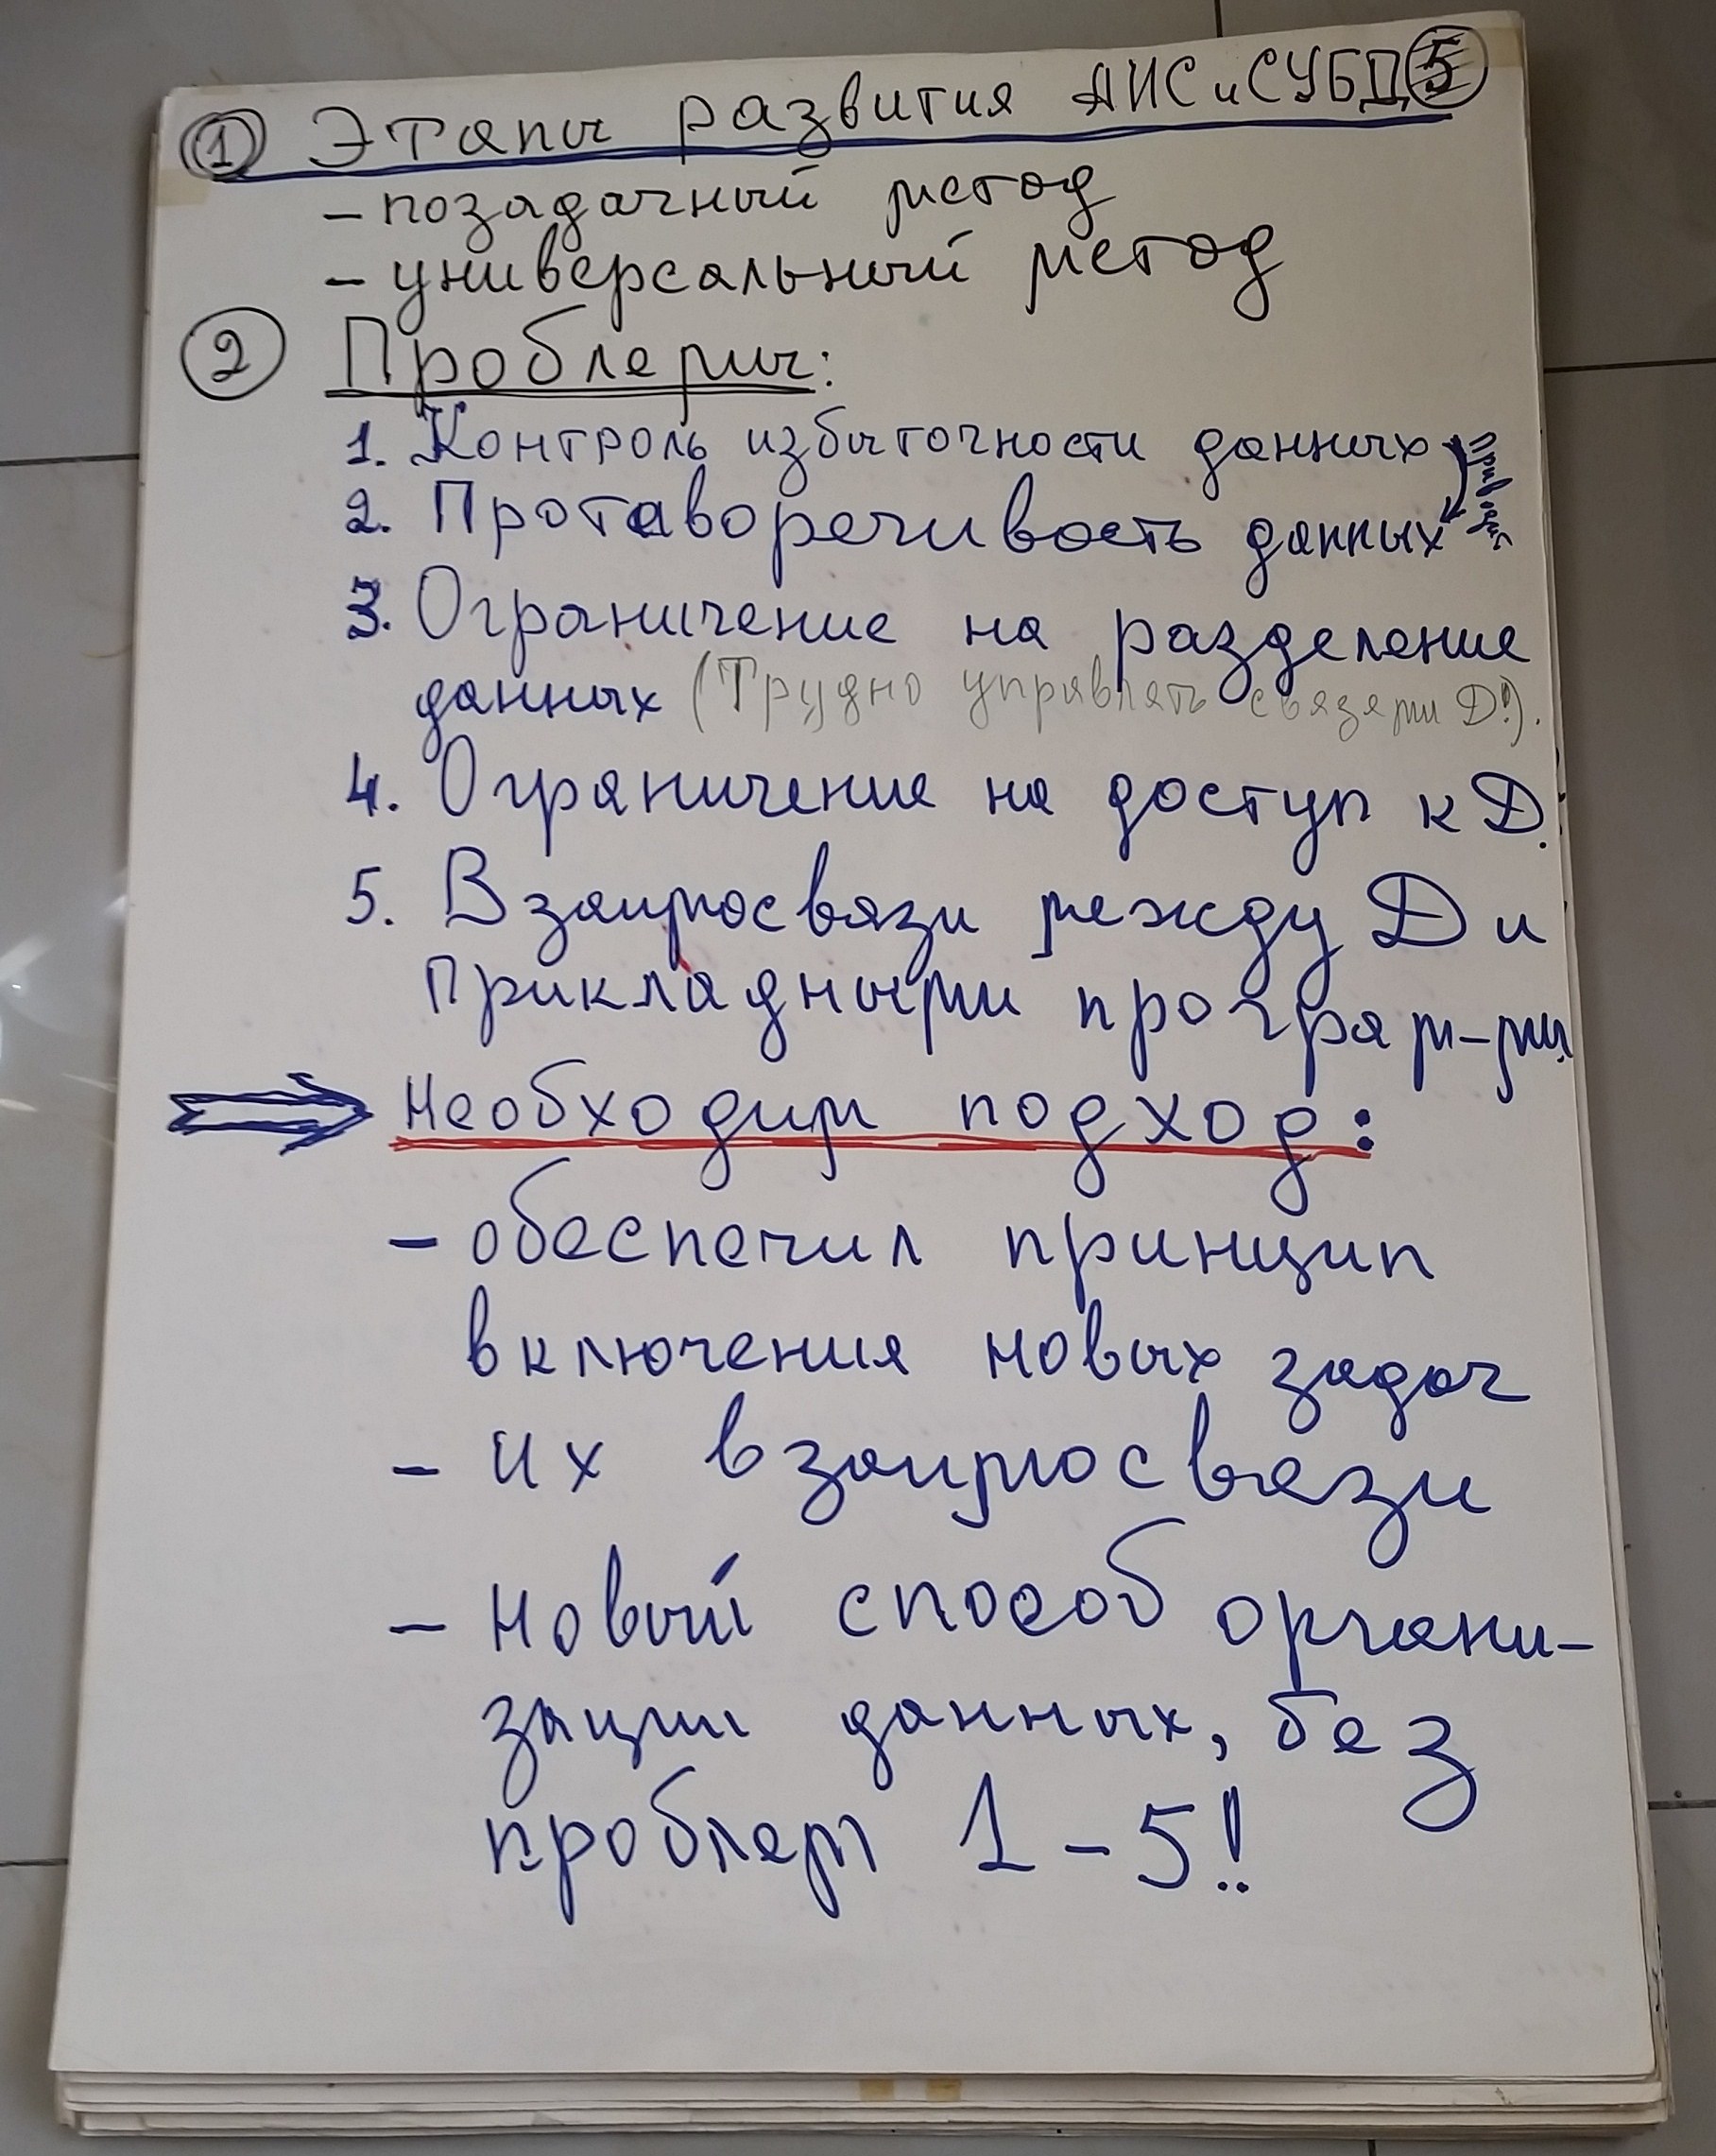 ① Этапы развития АИС и СУБД ⑤
- позадачный метод
- универсальный метод
② Проблемы:
1. Контроль избыточности данных
приводит
2. Протаворечивость данных
3. Ограничение на разделение
данных (Трудно управлять связями Д!).
4. Ограничение на доступ к Д.
5. Взаимосвязи между Д и
Прикладными програм-ми
⇒ Необходим подход:
- обеспечил принцип
включения новых задач
- их взаимосвязи
- новый способ органи-
зации данных, без
проблем 1-5!